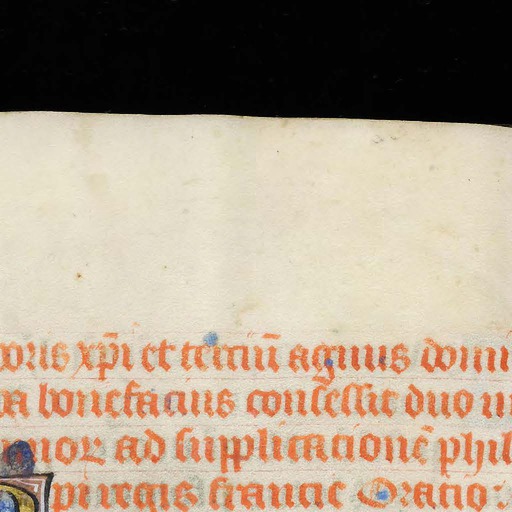 poris xp̄i et terciū agnus domi
pa bonefacius concessit duo m
annor ad supplicacionē phil
pi regis francie Oratio: